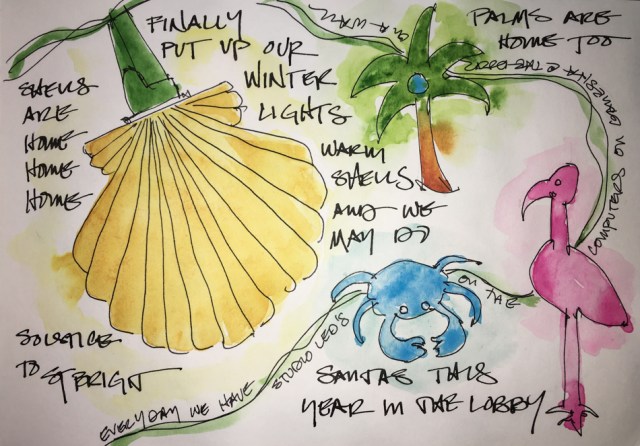 FINALLY
PUT UP OUR
WINTER
LIGHTS
WARM
SHELLS
AND WE
MAY DO
SANTAS THIS
YEAR IN THE LOBBY
SHELLS
ARE
HOME
HOME
HOME
SOLSTICE
TO ST BRIGIT
PALMS ARE
HOME TOO
EVERYDAY WE HAVE
STUDIO LED'S
ON THE
COMPUTERS ON
@ THE
ON A WALL